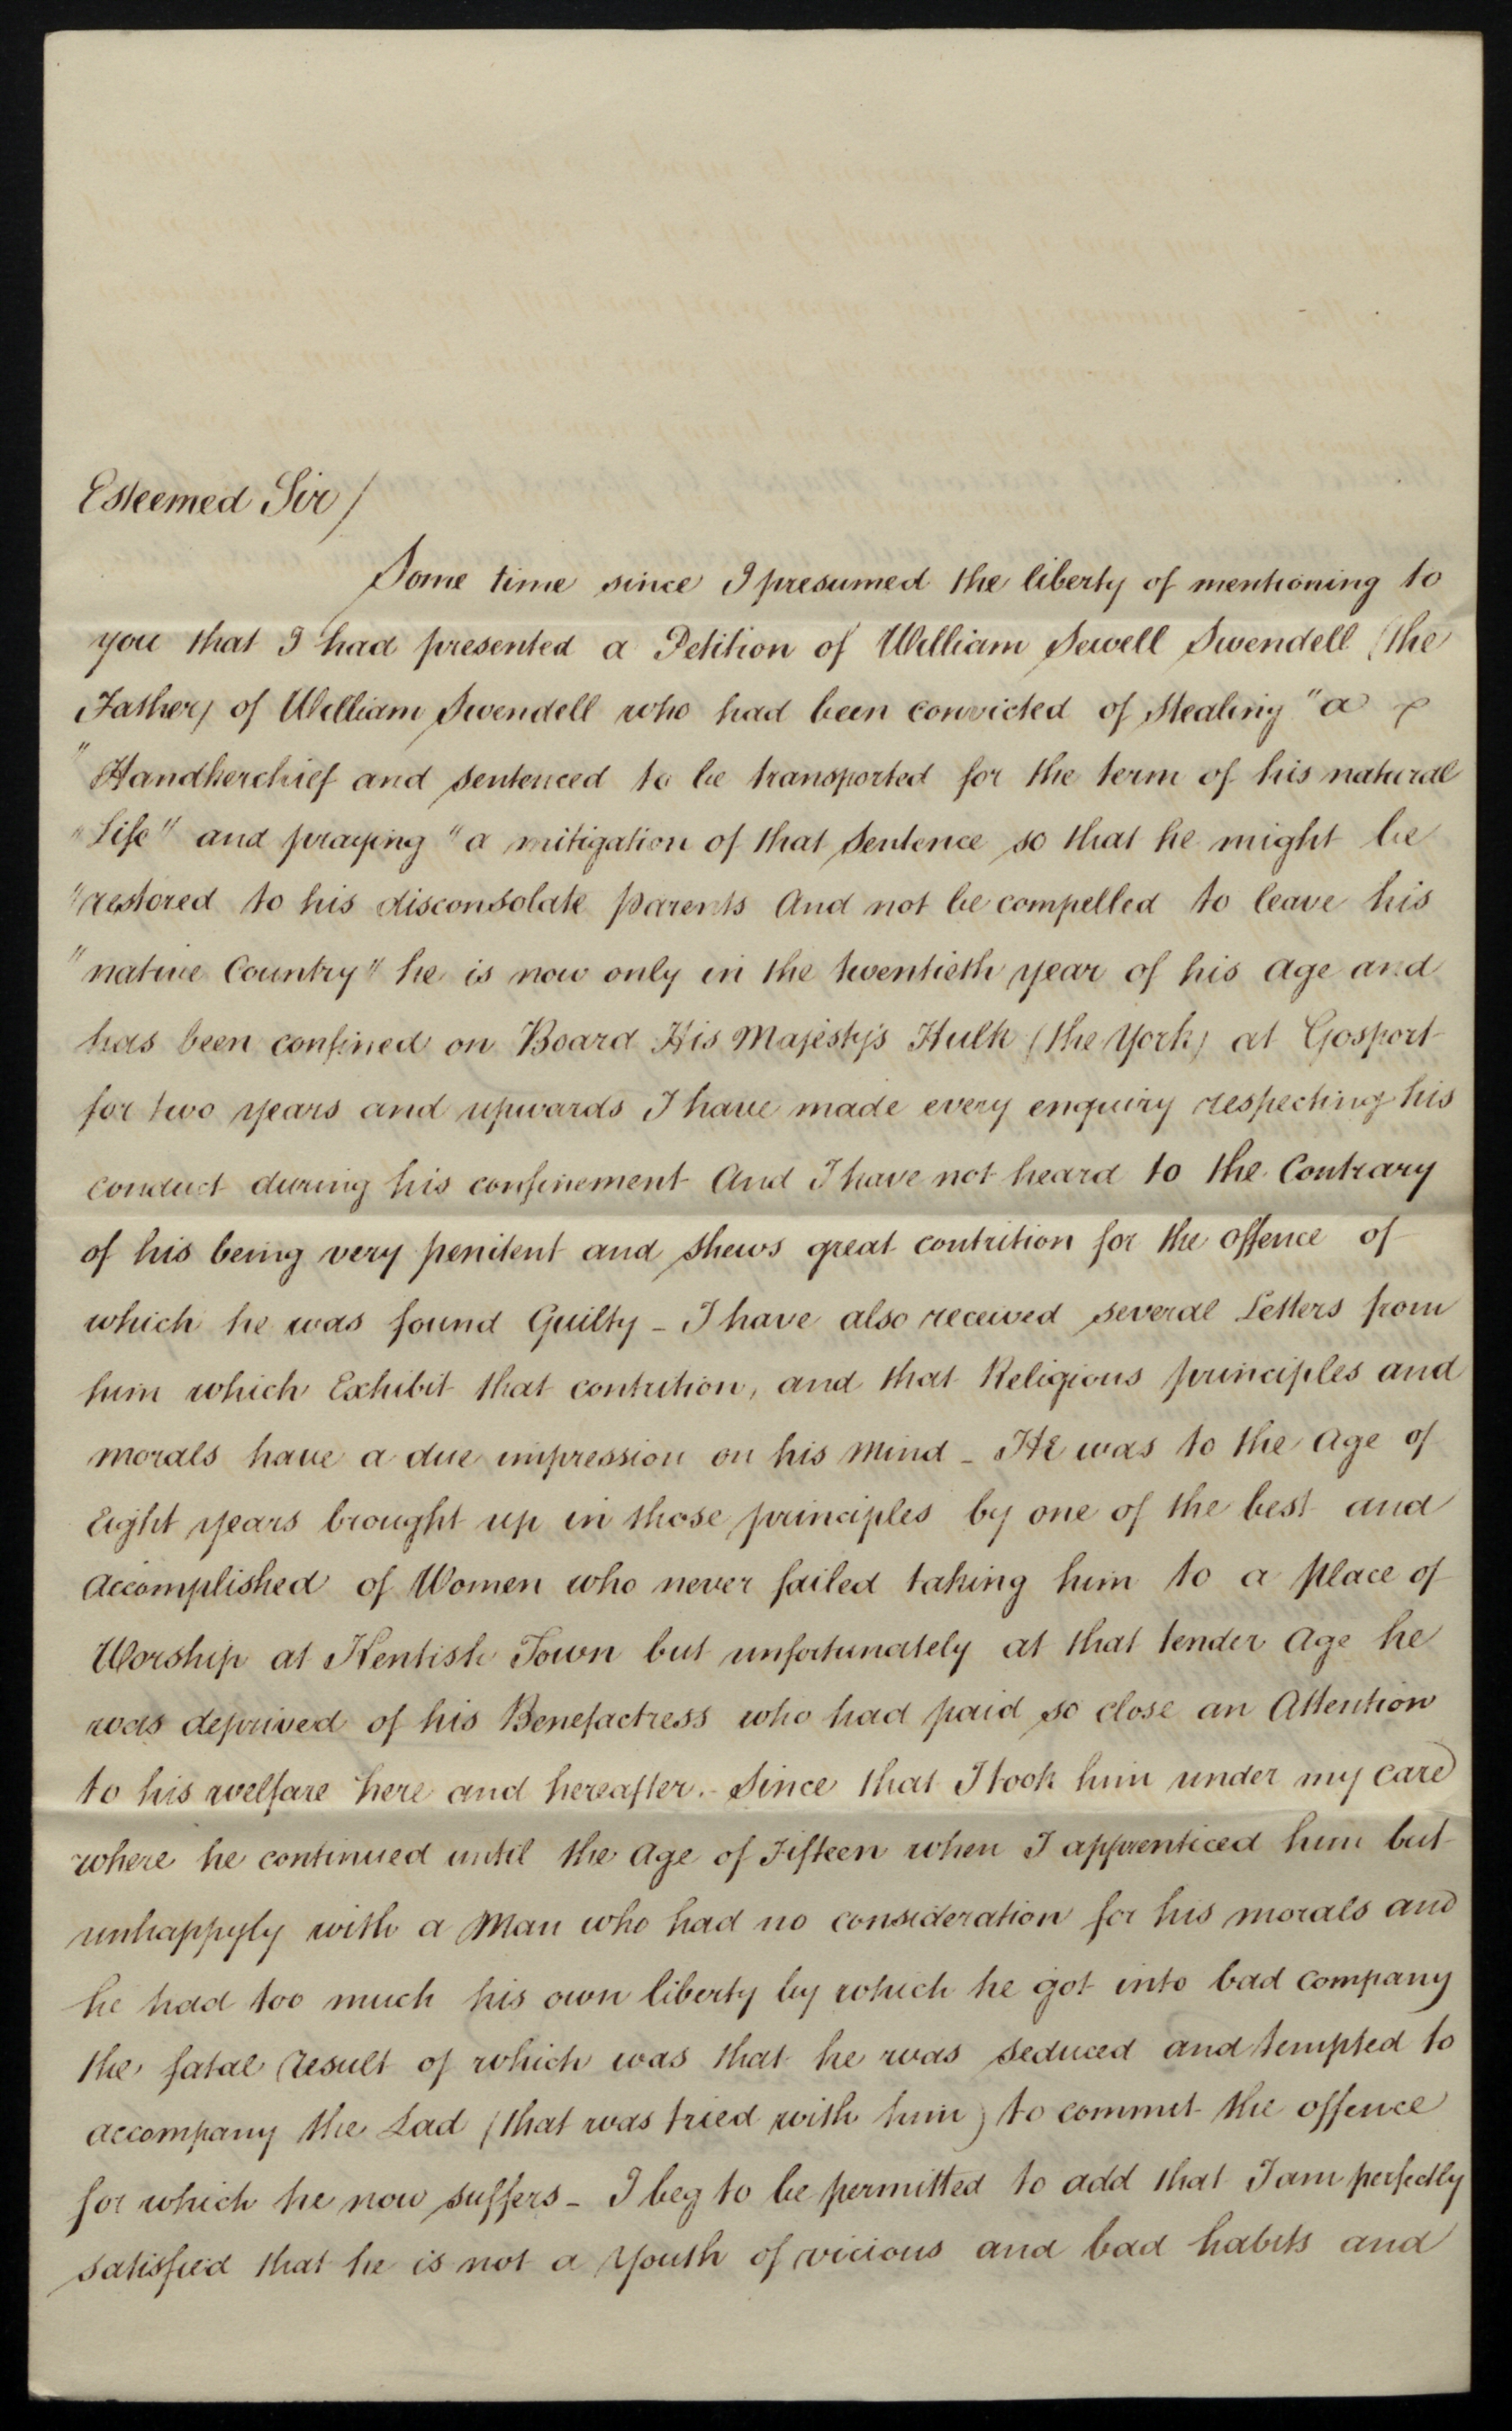 Esteemed Sir/
Some time since I presumed the liberty of mentioning to
you that I had presented a Petition of William Sewell Swendell (the
Father) of William Swendell who had been convicted of stealing "a
"Handkerchief and sentenced to be transported for the term of his natural
"Life" and praying "a mitigation of that Sentence so that he might be
"restored to his disconsolate parents And not be compelled to leave his
"native Country" he is now only in the twentieth year of his age and
has been confined on Board His Majesty's Hulk (the York) at Gosport
for two years and upwards I have made every enquiry respecting his
conduct during his confinement And I have not heard to the Contrary
of his being very penitent and shews great contrition for the offence of
which he was found Guilty - I have also received several Letters from
him which Exhibit that contrition, and that Religious principles and
morals have a due impression on his Mind - He was to the Age of
Eight years brought up in those principles by one of the best and
Accomplished of Women who never failed taking him to a place of
Worship at Kentish Town but unfortunately at that tender Age he
was deprived of his Benefactress who had paid so close an Attention
to his welfare here and hereafter. - Since that I took him under my care
where he continued until the Age of Fifteen when I apprenticed him but
unhappyly with a Man who had no consideration for his morals and
he had too much his own liberty by which he got into bad company
the fatal result of which was that he was seduced and tempted to
accompany the Lad (that was tried with him) to commit the offence
for which he now suffers - I beg to be permitted to add that I am perfectly
satisfied that he is not a Youth of vicious and bad habits and